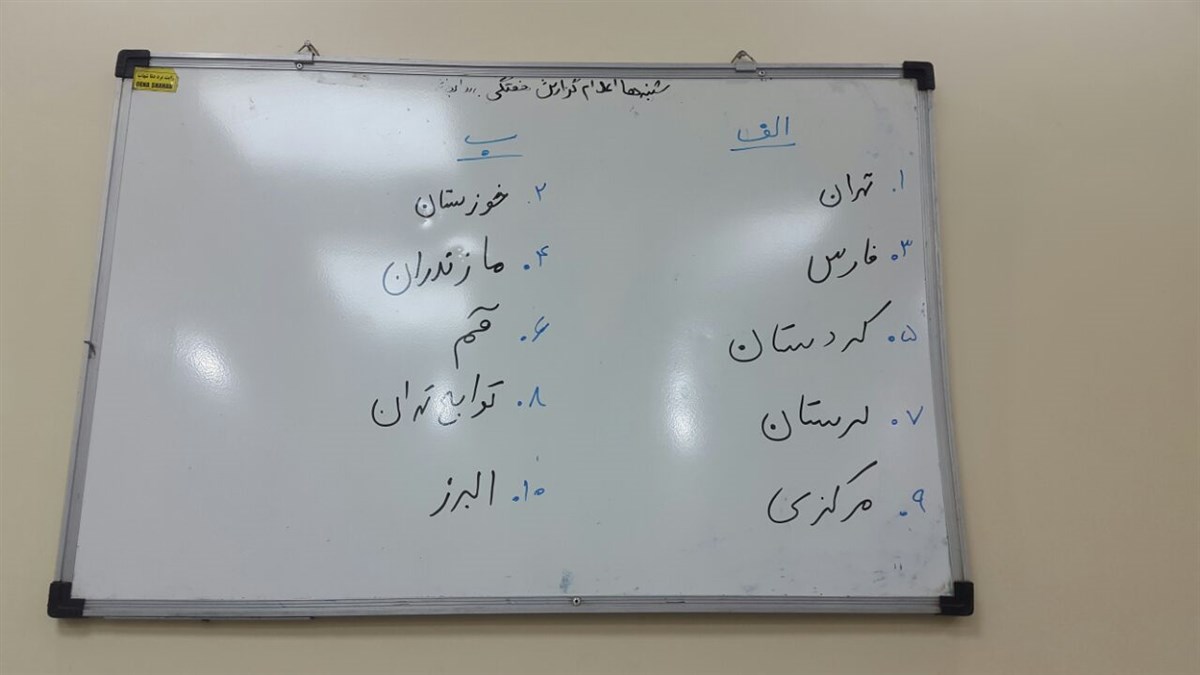 شنبه‌ها اعلام گزارش هفتگی
الف
۱. تهران
۳. فارس
۵. کردستان
۷. لرستان
۹. مرکزی
ب
۲. خوزستان
۴. مازندران
۶. قم
۸. توابع تهران
۱۰. البرز